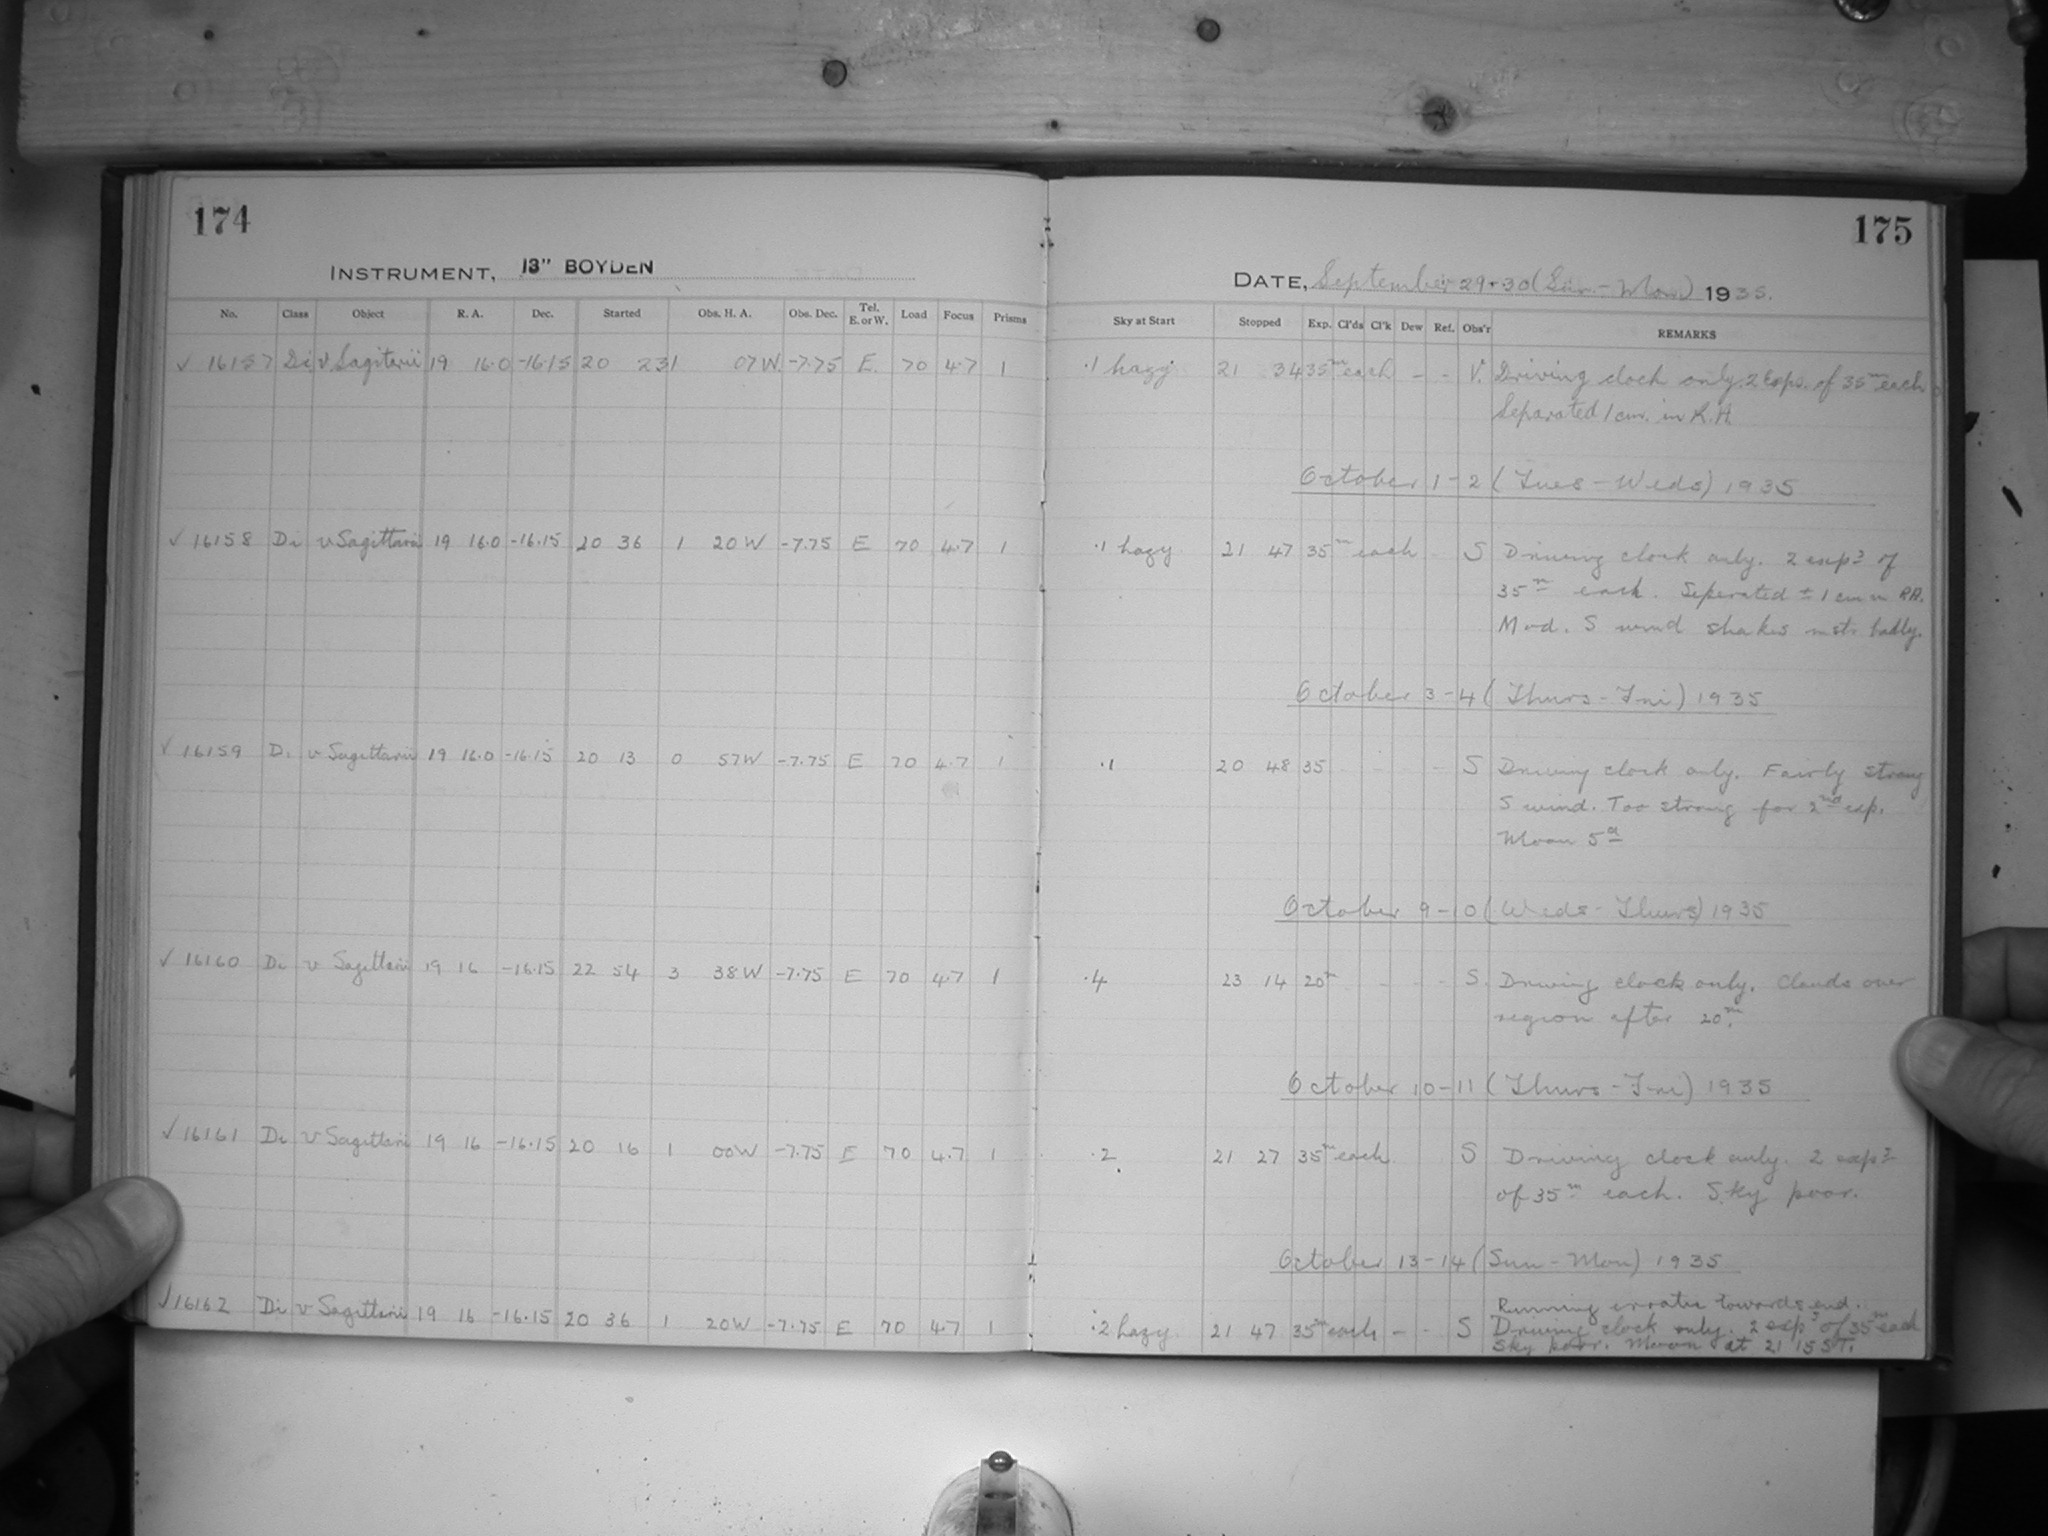 174
INSTRUMENT, 13" BOYDEN
No. Class Object R. A. Dec. Started Obs. H. A. Obs. Dec. Tel. E. or W. Load Focus Prisms
✓ 16157 Di v Sagitarii 19 16.0 -16.15 20 23 1 07 W. -7.75 E. 70 4.7 1
✓ 16158 Di v Sagittarii 19 16.0 -16.15 20 36 1 20 W -7.75 E 70 4.7 1
✓ 16159 Di v Sagittarii 19 16.0 -16.15 20 13 0 57 W -7.75 E 70 4.7 1
✓ 16160 Di v Sagittarii 19 16 -16.15 22 54 3 38 W -7.75 E 70 4.7 1
✓ 16161 Di v Sagittarii 19 16 -16.15 20 16 1 00 W -7.75 E 70 4.7 1
✓ 16162 Di v Sagittarii 19 16 -16.15 20 36 1 20 W -7.75 E 70 4.7 1
175
DATE, September 29+30 (Sun. - Mon) 1935.
Sky at Start Stopped Exp. Cl'ds Cl'k Dew Ref. Obs'r REMARKS
.1 hazy 21 34 35m each - - V. Driving clock only. 2 Exps. of 35m each
Separated 1 cm. in R.A.
October 1-2 (Tues - Weds) 1935
.1 hazy 21 47 35m each S Driving clock only. 2 exps of
35m each. Seperated ± 1 cm in RA.
Mod. S wind shakes instr badly.
October 3-4 (Thurs - Fri) 1935
.1 20 48 35 - S Driving clock only. Fairly strong
S wind. Too strong for 2nd exp.
Moon 5d
October 9-10 (Weds - Thurs) 1935
.4 23 14 20m - - - S. Driving clock only. Clouds over
region after 20m.
October 10-11 (Thurs - Fri) 1935
.2 21 27 35m each S Driving clock only. 2 exps
of 35m each. Sky poor.
October 13-14 (Sun - Mon) 1935
Running erratic towards end.
.2 hazy 21 47 35m each - - S Driving clock only. 2 exps of 35m each
Sky poor. Moon at 21 15 ST.